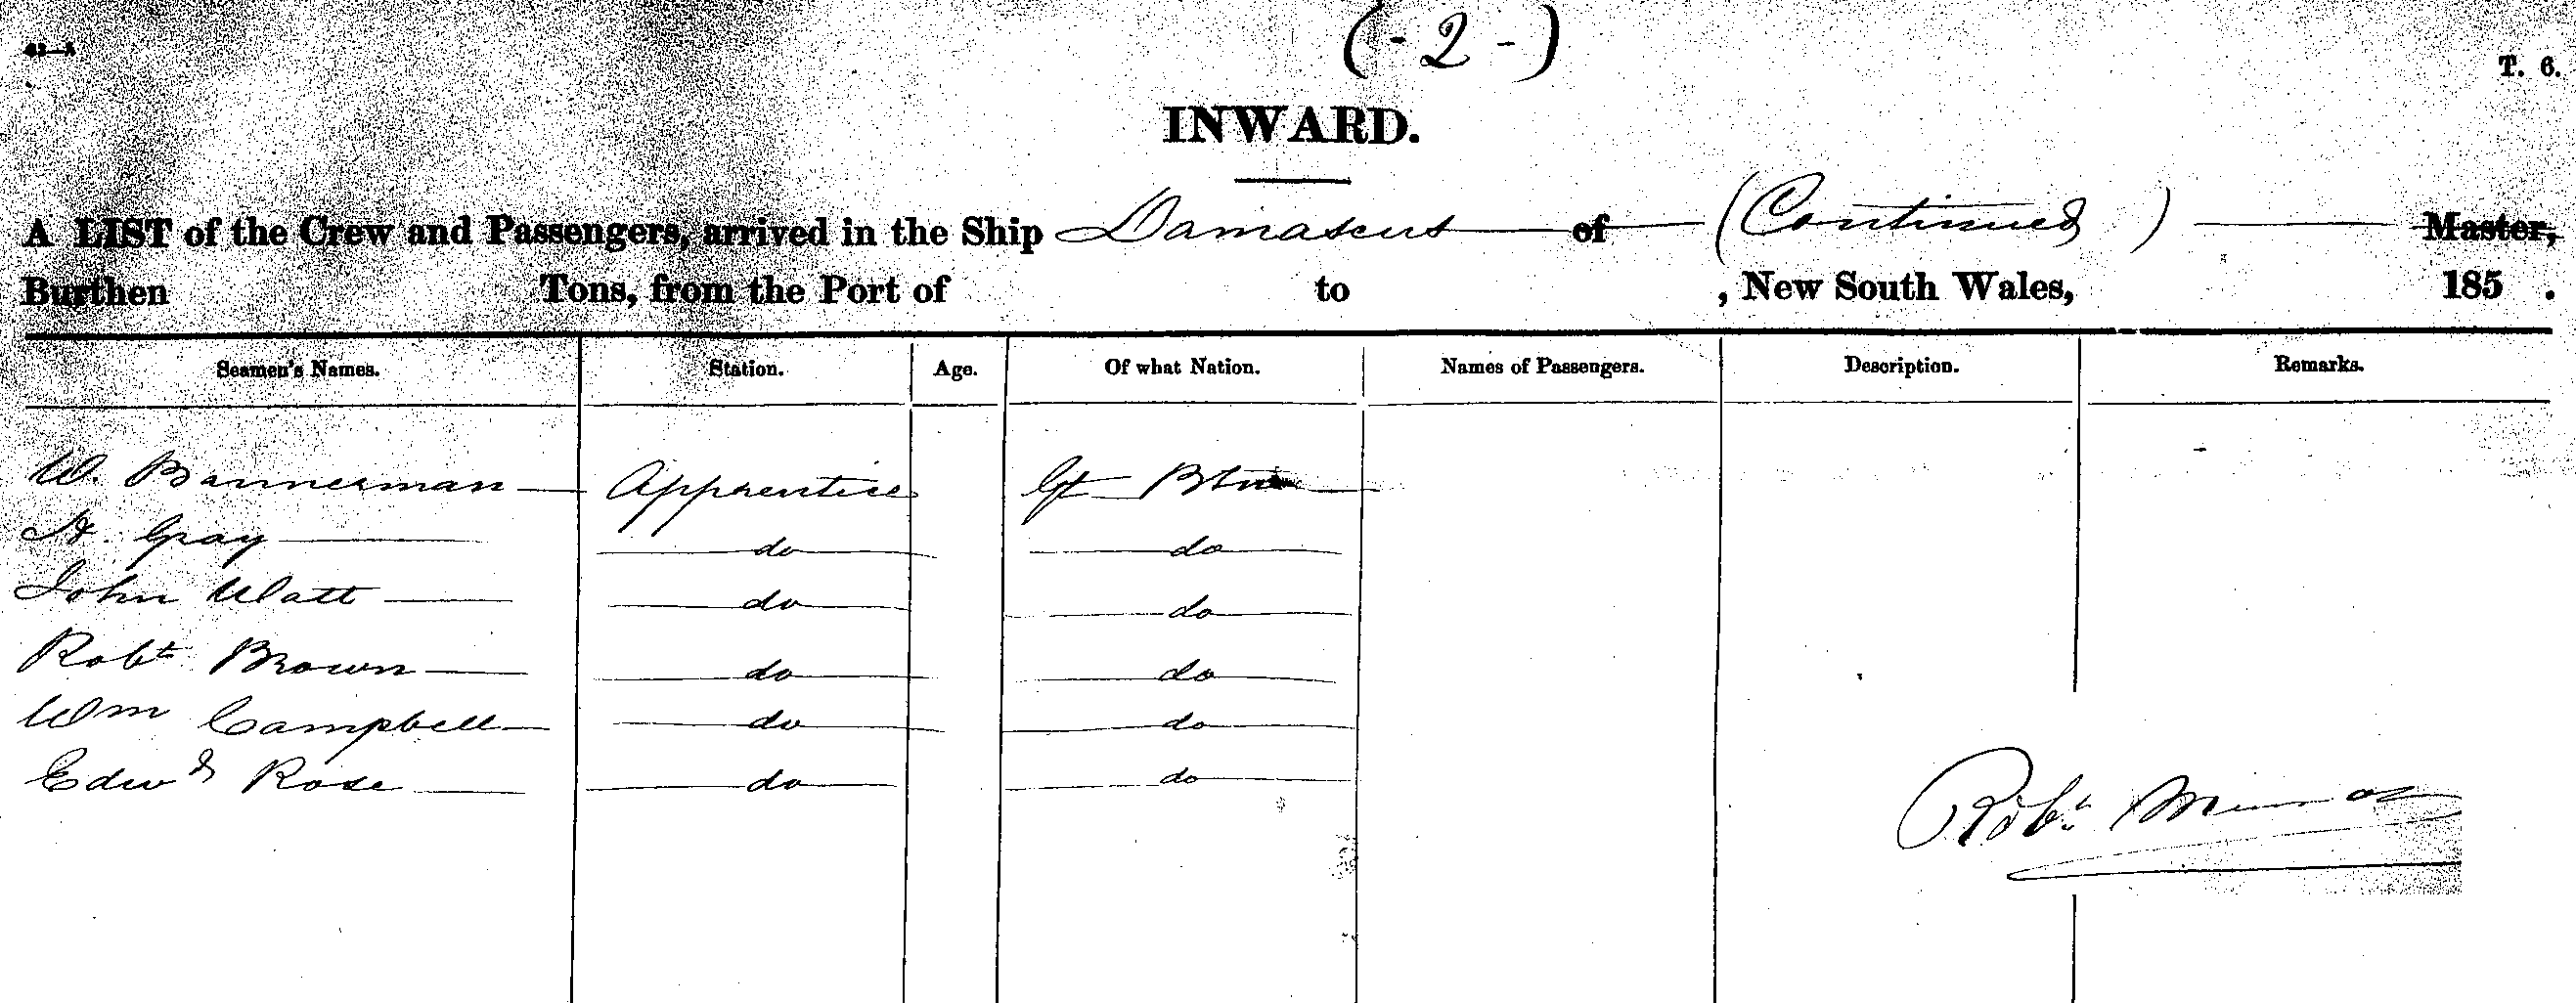 (- 2 -)
T. 6.
INWARD.
A LIST of the Crew and Passengers, arrived in the Ship Damascus of (Continued) Master,
Burthen Tons, from the Port of to , New South Wales, 185 .
Seamen's Names. Station. Age. Of what Nation. Names of Passengers. Description. Remarks.
W. Bannerman Apprentice Gt
A. Gray do do
John Watt do do
Robt Brown do do
Wm Campbell do do
Edwd Rose do do
Robt